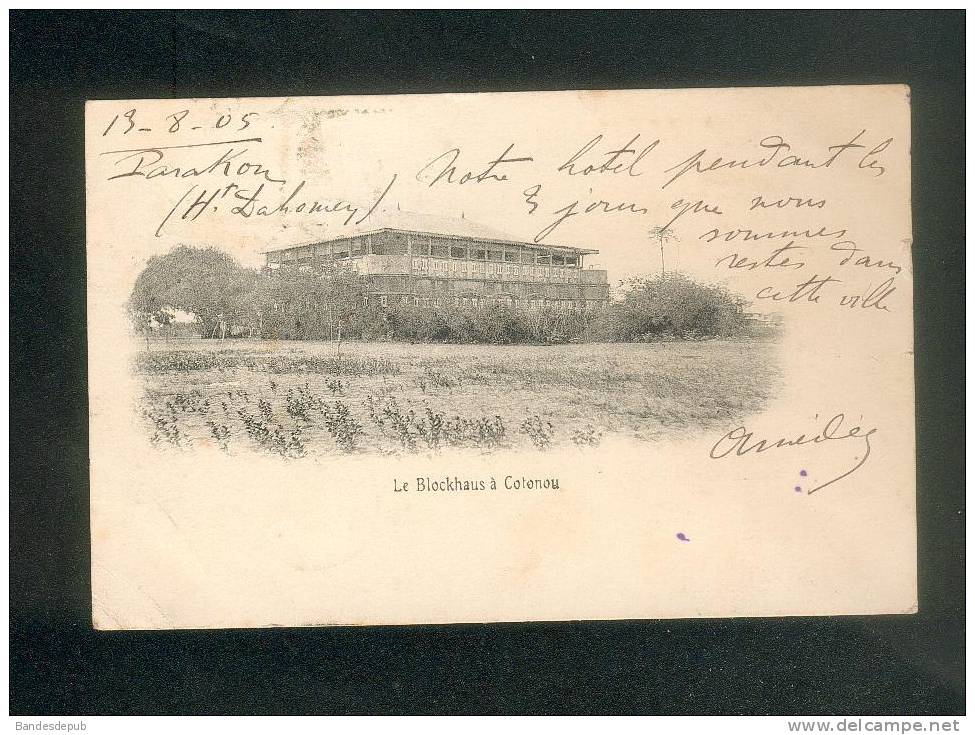 13-8-05
Parakou
(Ht Dahomey)
Notre hotel pendant les
3 jours que nous
sommes
restés dans
cette ville
Amédée
Le Blockhaus à Cotonou
Bandesdepub
www.delcampe.net